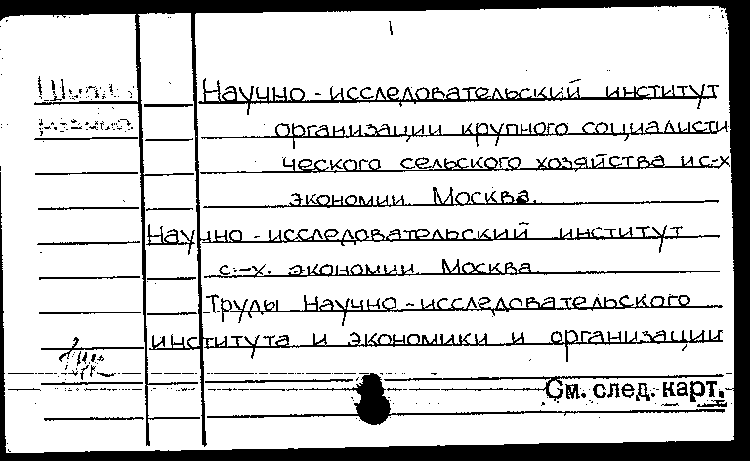 Научно-исследовательский институт
организации крупного социалисти
ческого сельского хозяйства и с-х
экономии. Москва.
Научно-исследовательский институт
с.-х. экономии. Москва
Труды Научно-исследовательского
института и экономики и организации
См. след. карт.